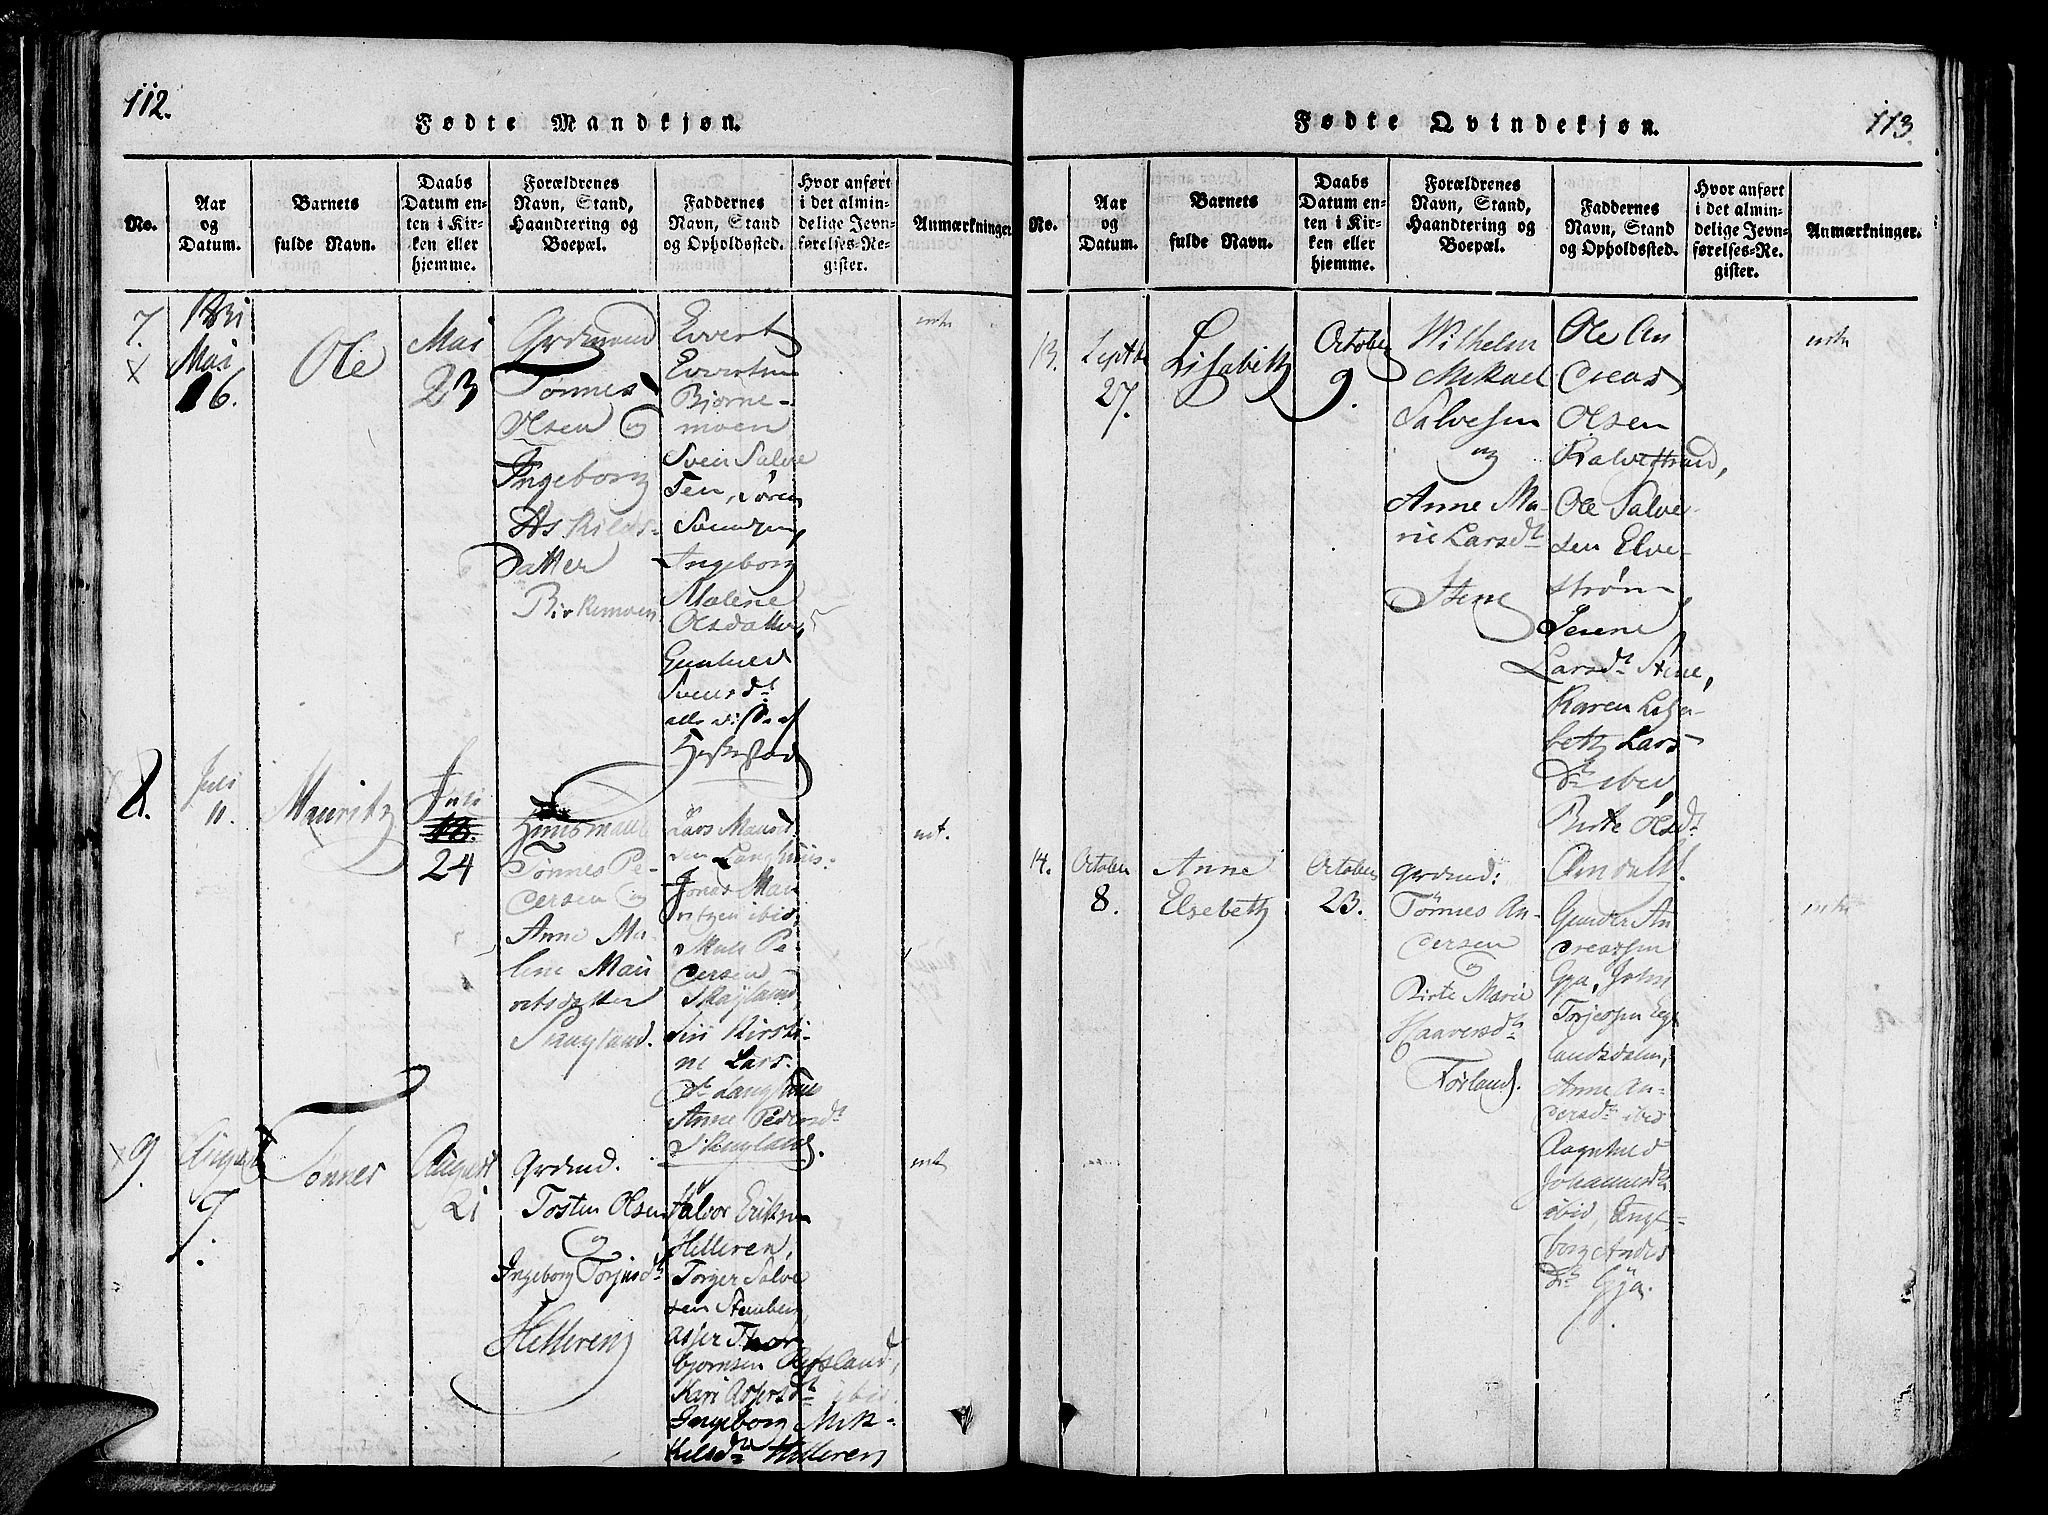 112.
Fødte Mandkjøn.
No.
Aar
og
Datum.
Barnets
fulde Navn.
Daabs
Datum en-
ten i Kir-
ken eller
hjemme.
Forældrenes
Navn, Stand,
Haandtering og
Boepæl.
Faddernes
Navn, Stand
og Opholdssted.
Hvor anført
i det almin-
delige Jevn-
førelses-Re-
gister.
Anmærkninger
7.
1831
Mai
16.
Ole
Mai
23
Grdmand
Tønnes
Olsen og
Ingeborg
Askilds-
Datter
Birkemoen
Evvert
Evertsen
Bjørne-
moen
Sven Salve
sen, Søren
Svendsen,
Ingeborg
Malene
Olsdatter,
Gunhild
Svensdt
alle disse af
Heskestad
8.
Juli
11.
Mauritz
Juli
24
Huusmand
Tønnes Pe-
dersen og
Anne Ma-
lene Mau
ritsdatter
Skayland.
Lars Maurit
sen Langhuus
Jonas Mau
ritzen ibid
Mads Pe-
dersen
Skayland
Siri Kirsti-
ne Lars-
dt Langhuus
Anne Pedersdt
Skayland.
9.
August
7.
Tønnes
August
21
Grdmd.
Tosten Olsen
og
Ingeborg Torjusdt
Helleren
Halvor Eriksen
Helleren,
Torger Salve
sen Stenberg
Asser Thor
bjørnsen Refsland,
Kari Assersdt ibid
Ingeborg Mik-
kelsdt Helleren
113.
Fødte Qvindekjøn.
No.
Aar
og
Datum.
Barnets
fulde Navn.
Daabs
Datum en-
ten i Kir-
ken eller
hjemme.
Forældrenes
Navn, Stand,
Haandtering og
Boepæl.
Faddernes
Navn, Stand
og Opholdssted.
Hvor anført
i det almin-
delige Jevn-
førelses-Re-
gister.
Anmærkninger.
13.
Septbr
27.
Lisabeth
October
9.
Wilhelm
Mikael
Salvesen
og
Anne Ma-
rie Larsdt
Stene
Ole An
dreas
Olsen
Kalvestrand,
Ole Salve-
sen Elve-
strøm,
Serine
Larsdt Stene,
Karen Lisa-
beth Lars
dt ibid,
Birte Olsdt
Omdal.
14.
October
8.
Anne
Elsebeth
October
23.
Grdmd:
Tønnes An-
dersen
og
Birte Marie
Haaversdt
Førland.
Gunder An
dreassen
Gya, John
Torjessen Eeg
landsdalen,
Anne An-
dersdt ibid
Aagnhild
Johannesdt
ibid, Inge-
borg Anders
dt Gya.